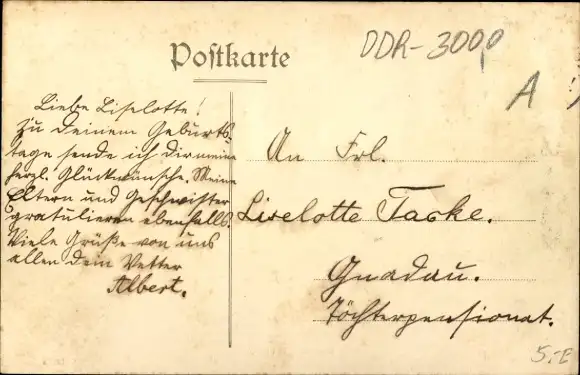 Postkarte
DDR-3000
A
Liebe Liselotte!
Zu deinem Geburts-
tage sende ich dir meine
herzl. Glückwünsche. Meine
Eltern und Geschwister
gratulieren ebenfalls.
Viele Grüße von uns
allen dein Vetter
Albert.
An Frl.
Liselotte Taske.
Gnadau.
Töchterpensionat.